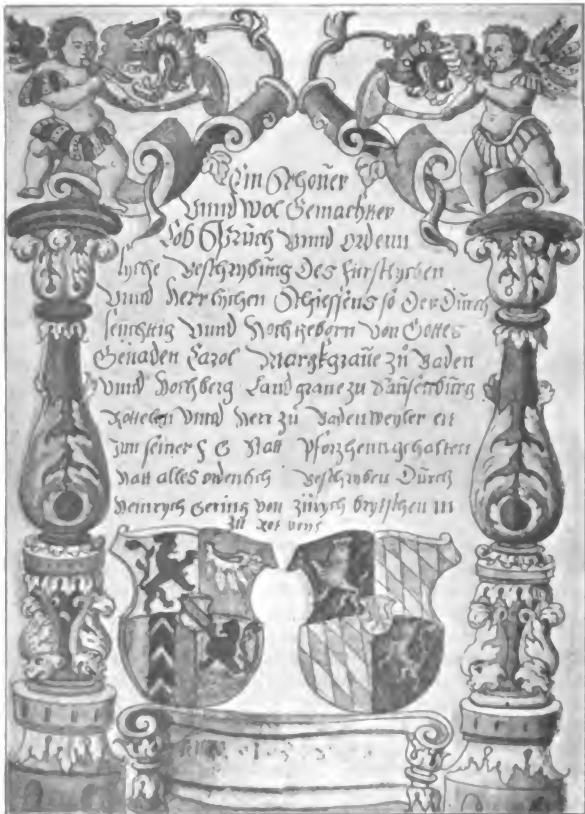 Ein Schoner
Vnnd Wol Gemachtter
Lob Spruch vnnd ordenn
lyche Beschrybung Des Fürstlychen
Vnnd Herrlychen Schiessens so Der Durch
leuchttig Vnnd Hoch Geborn Von Gottes
Genaden Carol Marckgraue zu Baden
Vnnd Hochberg Landgraue zu Sausenburg
Rottelen Vnnd Herr zu Badenweyler ett
Inn seiner F G Statt Pfortzheim gehalten
Hatt alles ordenlich Beschryben Durch
Heinrych Gering von Zürych